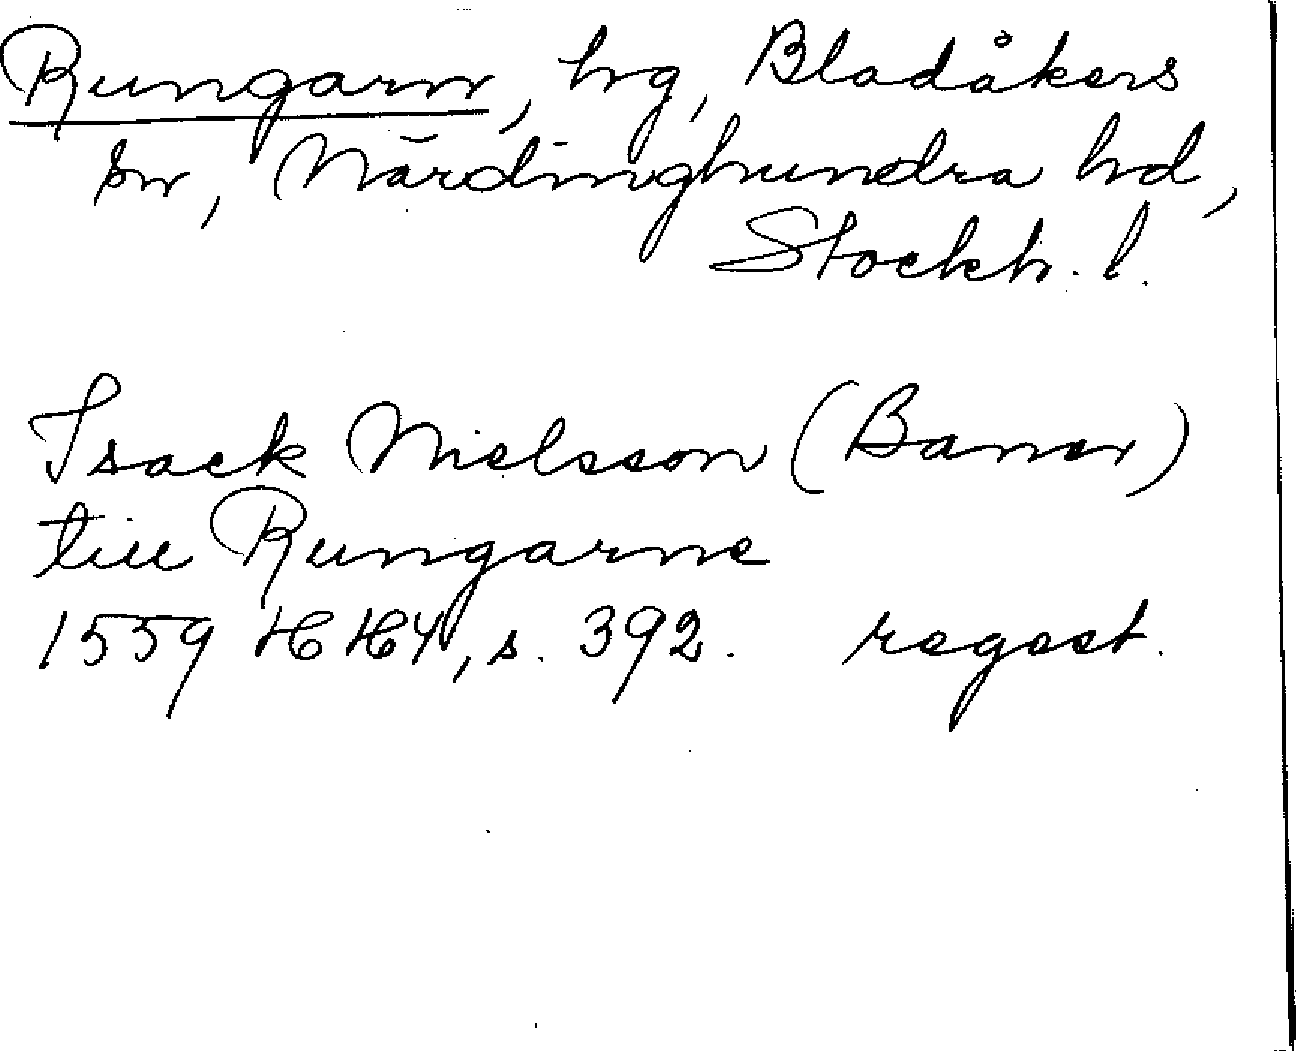 Rungarn, hg, Bladåkers
sn, Närdinghundra hd,
Stockh. l.
Isack Nielsson (Baner)
till Rungarne
1559 HH4, s. 392. regest.